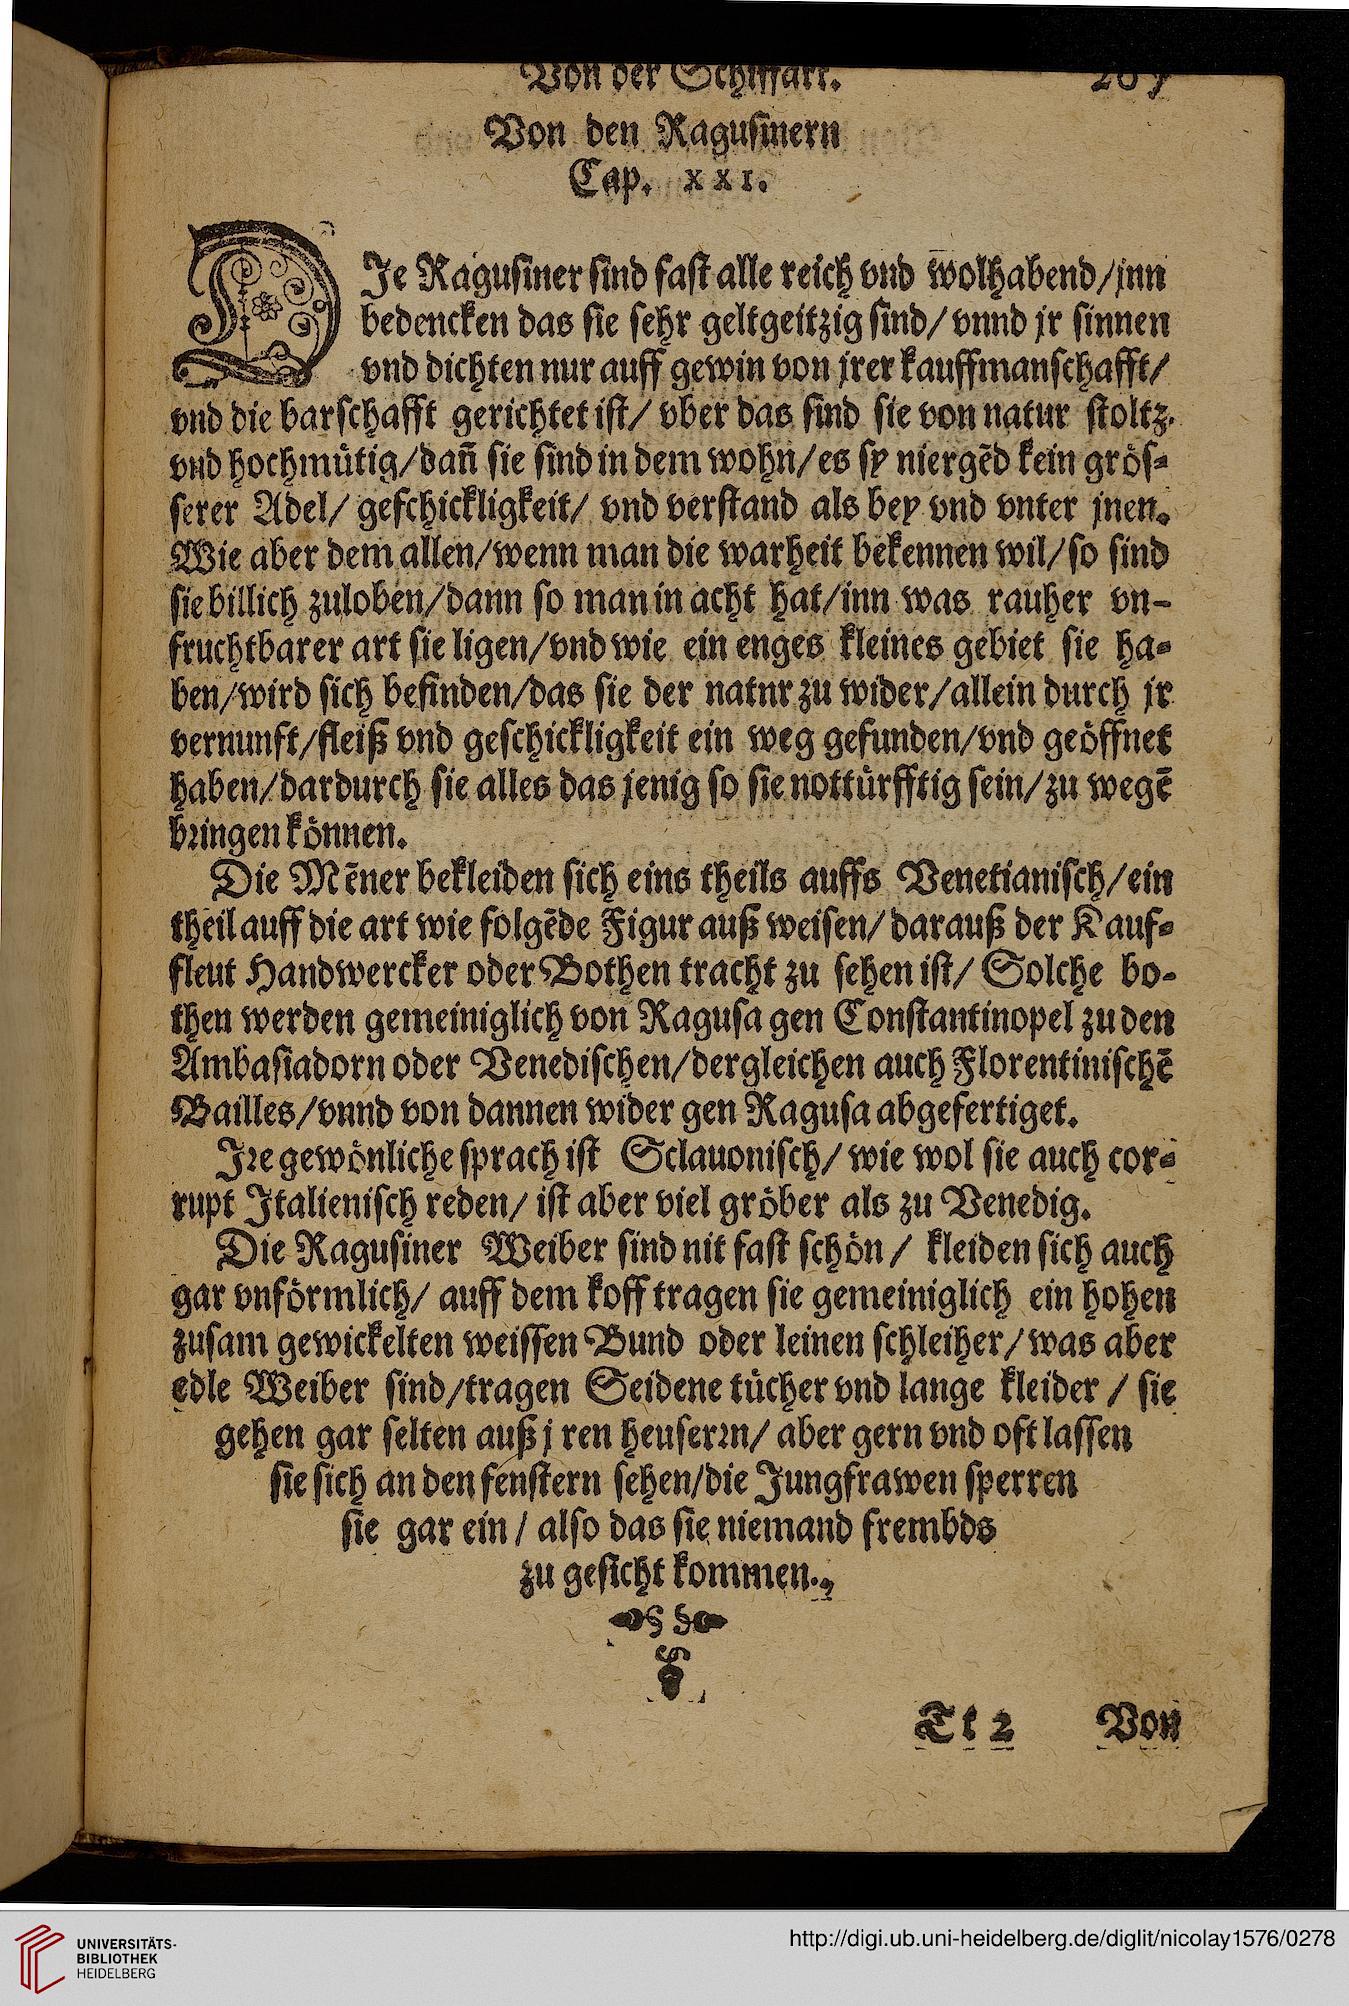 Von der Schiffart.
Von den Ragusinern
Cap. XXI.
DJe Ragusiner sind fast alle reich vnd wolhabend/jnn
bedencken das sie sehr geltgeitzig sind/ vnnd jr sinnen
vnd dichten nur auff gewin von jrer kauffmanschafft/
vnd die barschafft gerichtet ist/ vber das sind sie von natur stoltz.
vnd hochmütig/dañ sie sind in dem wohn/es sy niergẽd kein grös-
serer Adel/ geschickligkeit/ vnd verstand als bey vnd vnter jnen.
Wie aber dem allen/wenn man die warheit bekennen wil/so sind
sie billich zuloben/dann so man in acht hat/inn was rauher vn-
fruchtbarer art sie ligen/vnd wie ein enges kleines gebiet sie ha-
ben/wird sich befinden/das sie der natnr zu wider/allein durch jr
vernunft/fleiß vnd geschickligkeit ein weg gefunden/vnd geöffnet
haben/dardurch sie alles das jenig so sie nottürfftig sein/zu wegẽ
bringen können.
Die Mẽner bekleiden sich eins theils auffs Venetianisch/ein
theil auff die art wie folgẽde Figur auß weisen/ darauß der Kauf-
fleut Handwercker oder Bothen tracht zu sehen ist/ Solche bo-
then werden gemeiniglich von Ragusa gen Constantinopel zu den
Ambasiadorn oder Venedischen/dergleichen auch Florentinischẽ
Bailles/vnnd von dannen wider gen Ragusa abgefertiget.
Jre gewönliche sprach ist Sclauonisch/ wie wol sie auch cor-
rupt Jtalienisch reden/ ist aber viel gröber als zu Venedig.
Die Ragusiner Weiber sind nit fast schön / kleiden sich auch
gar vnförmlich/ auff dem koff tragen sie gemeiniglich ein hohen
zusam gewickelten weissen Bund oder leinen schleiher/was aber
edle Weiber sind/tragen Seidene tücher vnd lange kleider / sie
gehen gar selten auß j ren heusermn/ aber gern vnd oft lassen
sie sich an den fenstern sehen/die Jungfrawen sperren
sie gar ein / also das sie niemand frembds
zu gesicht kommen.
Tt 2 Von
UNIVERSITÄTS-
BIBLIOTHEK
HEIDELBERG
http://digi.ub.uni-heidelberg.de/diglit/nicolay1576/0278